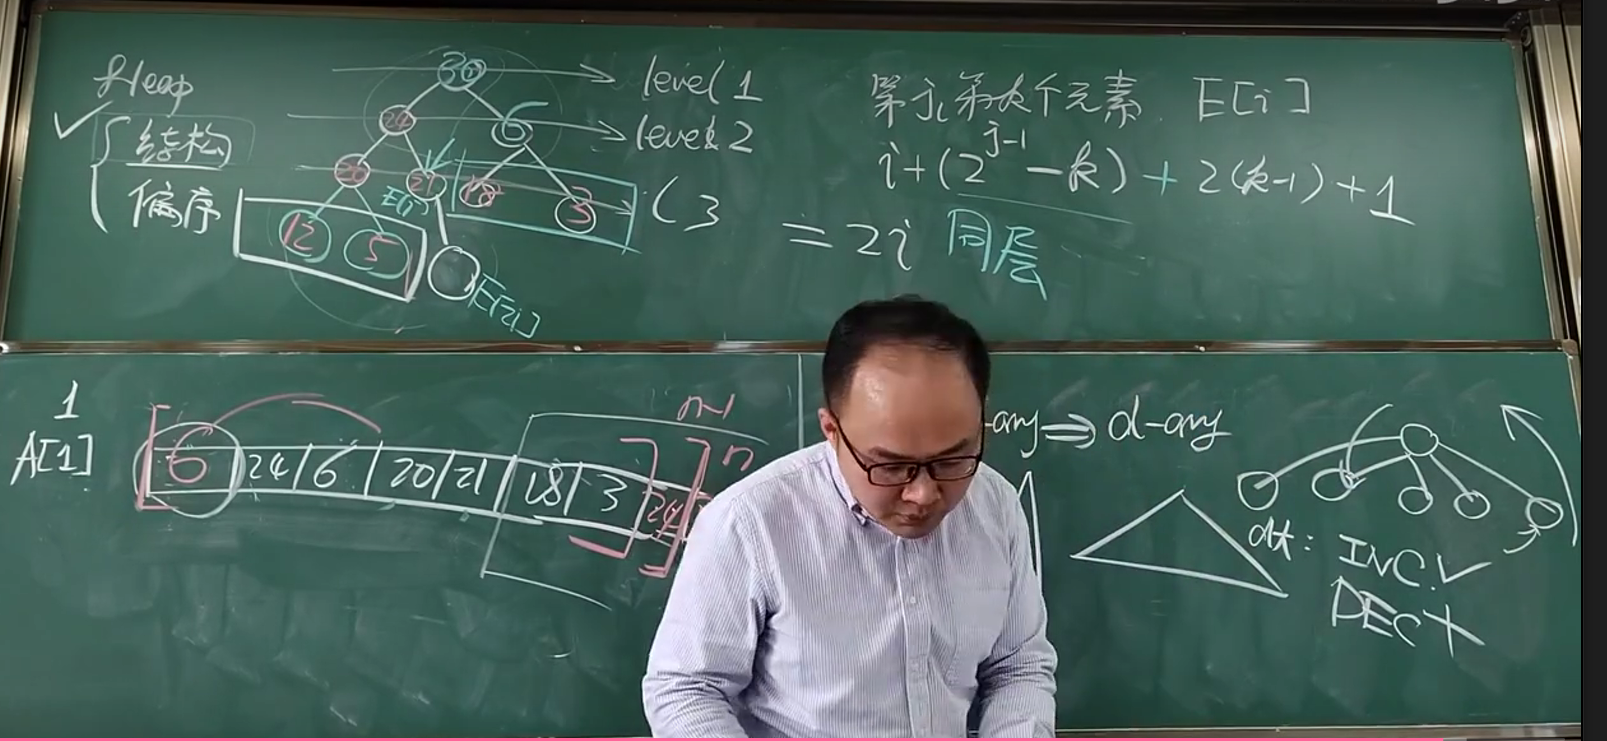 Heap
结构
偏序
30
24
6
20
21
18
3
12
5
E[i]
E[2i]
level 1
level 2
(3
第j层第k个元素 E[i]
i+(2^{j-1}-k)+2(k-1)+1
=2i 同层
1
A[1]
6 24 6 20 21 18 3 24
n-1
n
-ary ⇒ d-ary
d↑: INC ✓
DEC ✗